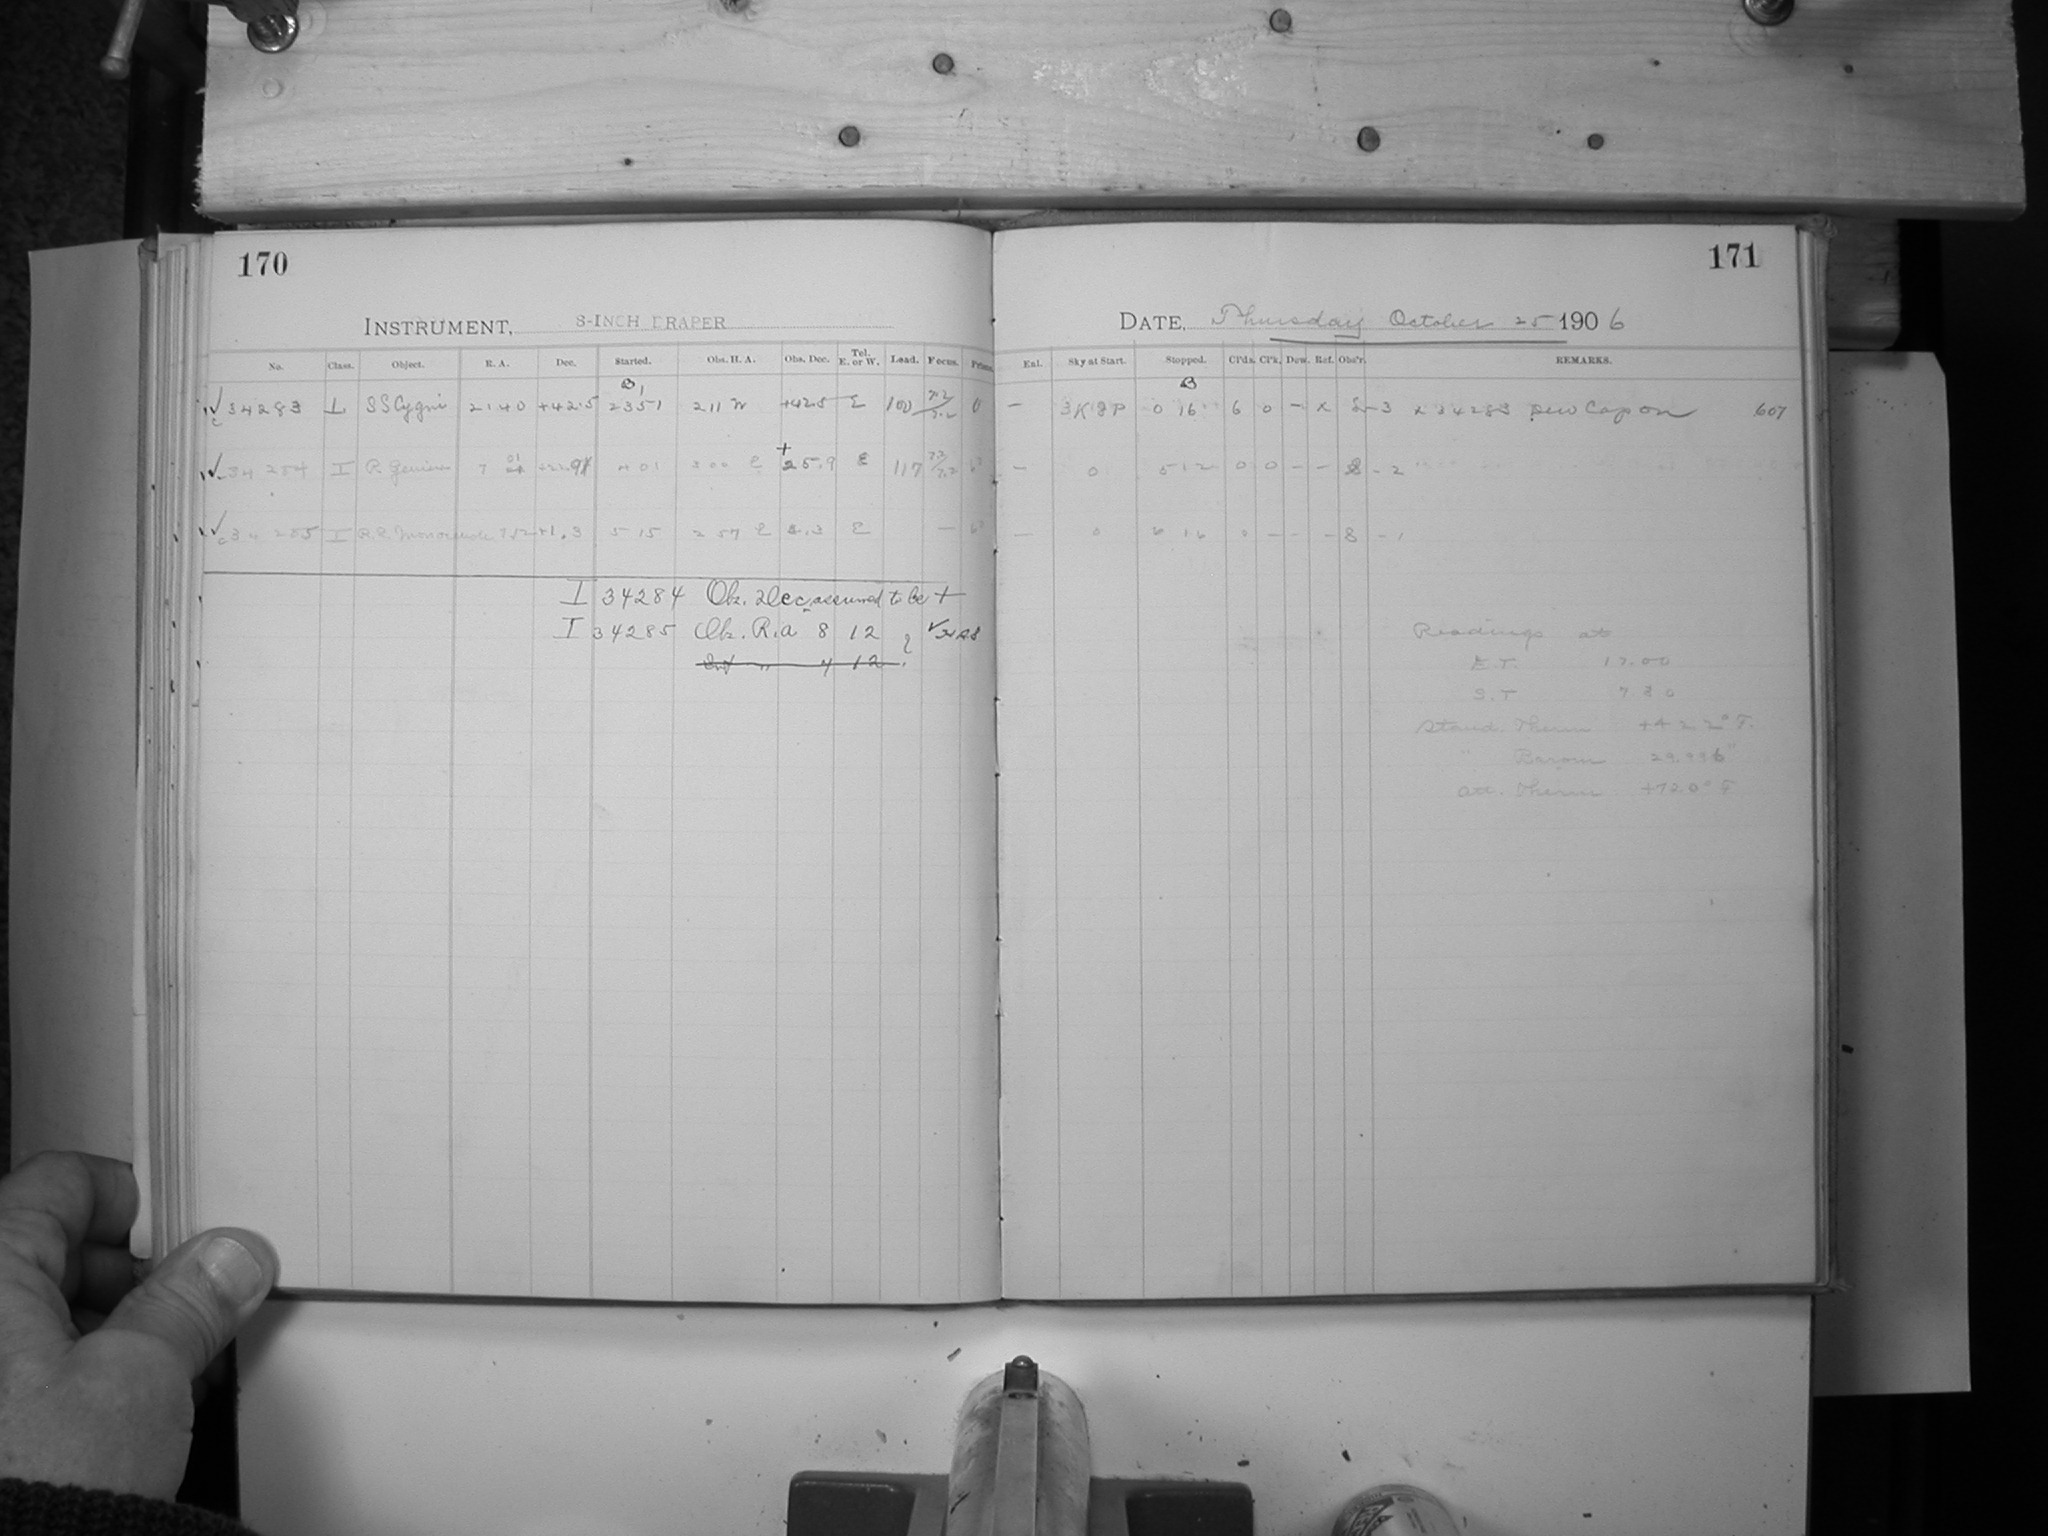 170
INSTRUMENT, 8-INCH DRAPER
No. Class. Object. R. A. Dec. Started. Obs. H. A. Obs. Dec. Tel. E. or W. Load. Focus. Prism.
34283 I SS Cygni 21 40 +42.5 23 51 2 11 W +42.5 E 100 0
34284 I R. Gemin 7 01 3 00 E +25.9 E 117
34285 I 7 52 +1.3 5 15 2 57 E E —
I 34284 Obs. Dec. assumed to be +
I 34285 Obs. R.A 8 12
171
DATE, Thursday October 25 1906
Enl. Sky at Start. Stopped. Cl'ds. Cl'k. Dew. Ref. Obs'r. REMARKS.
— 0 16 6 0 – x 2-3 x 34283 Dew Cap on 607
— 0 5 12 0 0 – – 8 - 2
— 0 6 16 0 – – – 8 - 1
Readings at
E.T. 17.00
S.T 7 30
Stand. Therm +42 2° F.
" Barom 29.996"
Att. Therm +72.0° F